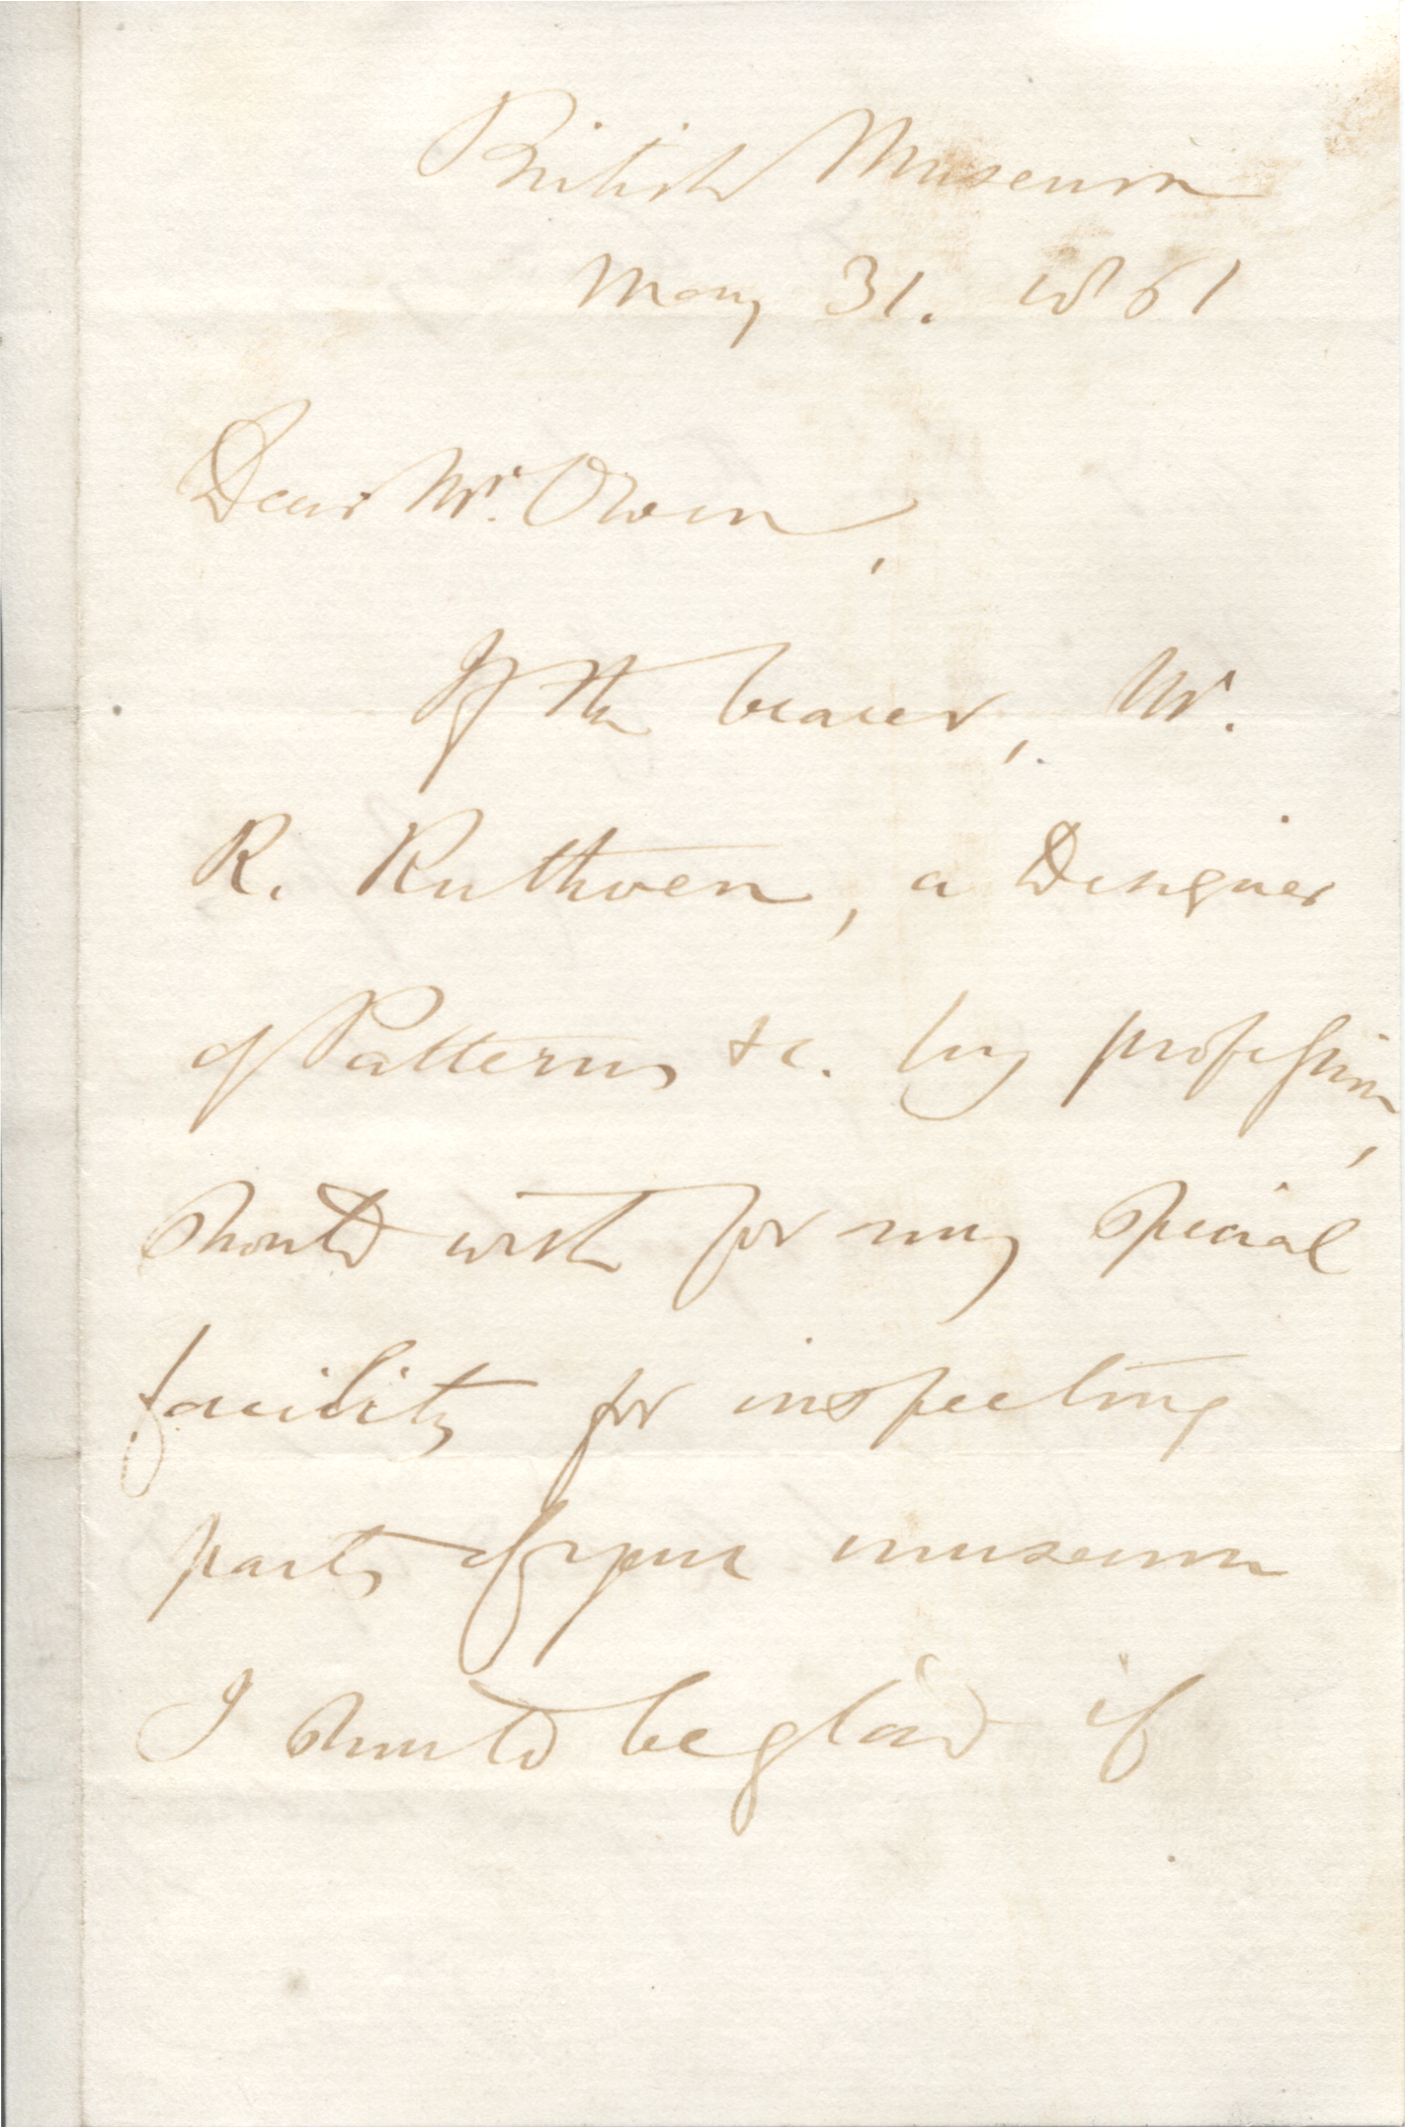 British Museum
May 31. 1861
Dear Mr. Owen,
If the bearer, Mr.
R. Ruthven, a Designer
of Patterns &c. by profession,
should wish for any special
facility for inspecting
parts of your museum
I should be glad if